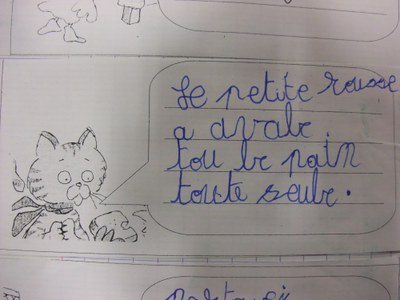 Le petite rousse
a avale
tou le pain
toute seule.